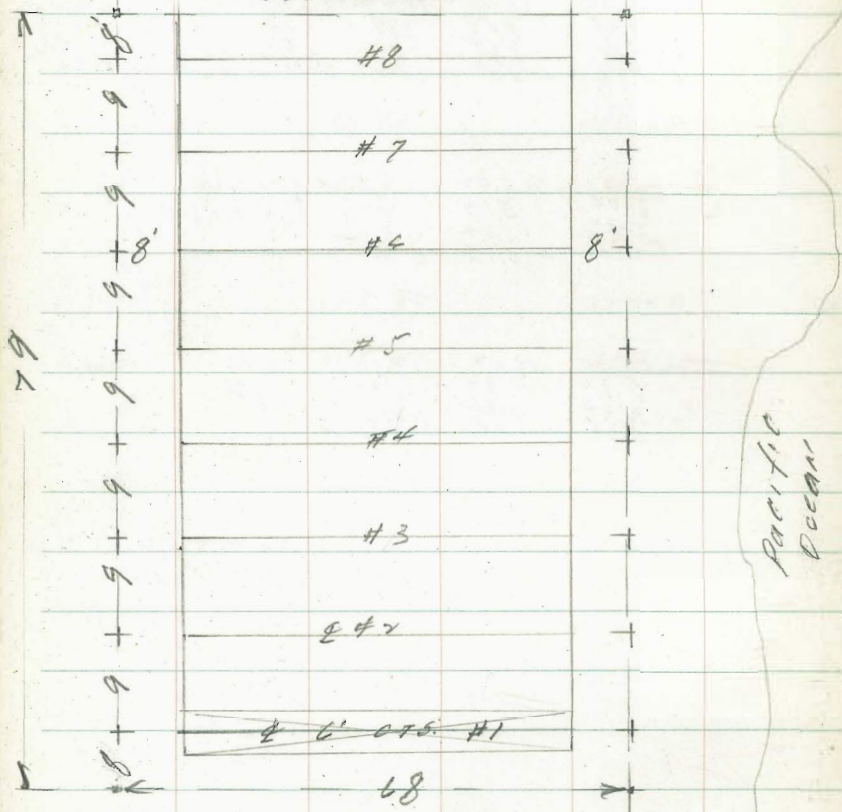 8'
#8
9
#7
9
8' #6 8'
9
79
#5
9
#4
9
Pacific
Ocean
#3
9
℄ #2
9
℄ 6' CTS. #1
8
68